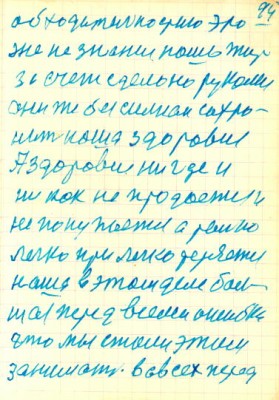 94
обходительностию это
же не знании наш Жир
за счет сделано руками
они же бессилная сохра-
нит наша здоровия
А здоровие нигде и
никак не продается и
не покупается а равно
легко при легко держется
наша в этом деле боль-
шая перед всеми ошибка
что мы стали этим
заниматс. во всех перед